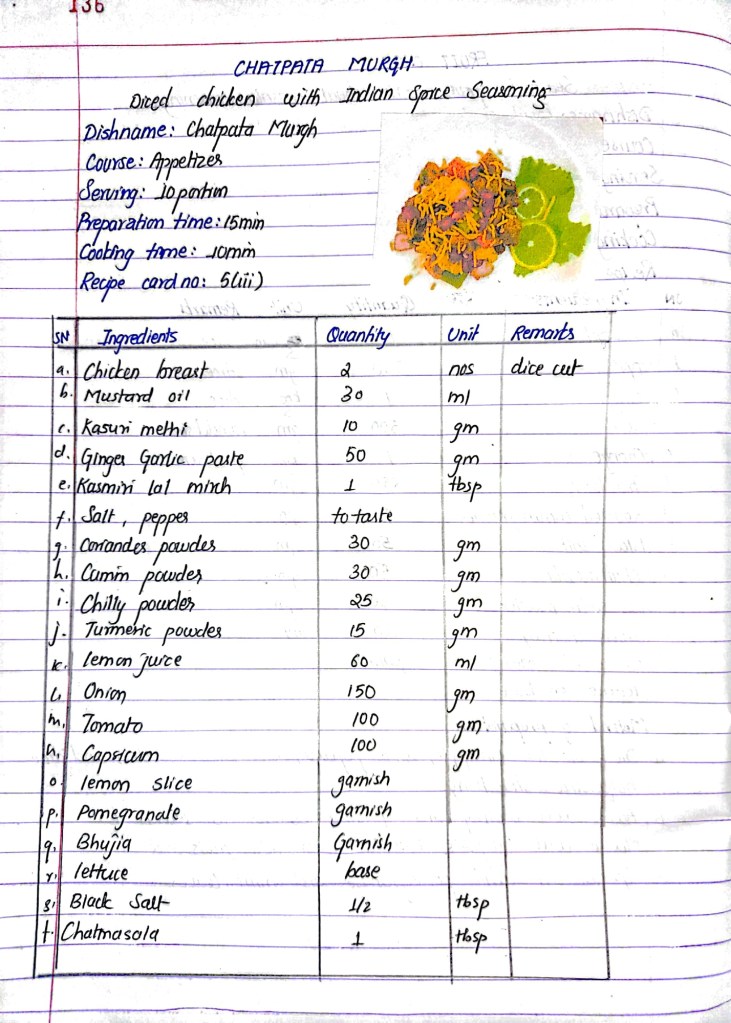 136
CHATPATA MURGH
Diced chicken with Indian Spice Seasoning
Dishname: Chatpata Murgh
Course: Appetizer
Serving: 10 portion
Preparation time: 15min
Cooking time: 10min
Recipe card no: 5(iii)
SN Ingredients Quantity Unit Remarks
a. Chicken breast 2 nos dice cut
b. Mustard oil 30 ml
c. Kasuri methi 10 gm
d. Ginger Garlic paste 50 gm
e. Kasmiri lal mirch 1 tbsp
f. Salt, pepper to taste
g. Coriander powder 30 gm
h. Cumin powder 30 gm
i. Chilly powder 25 gm
j. Turmeric powder 15 gm
k. lemon juice 60 ml
l. Onion 150 gm
m. Tomato 100 gm
n. Capsicum 100 gm
o. lemon slice garnish
p. Pomegranate garnish
q. Bhujia Garnish
r. lettuce base
s. Black Salt 1/2 tbsp
t. Chatmasala 1 tbsp